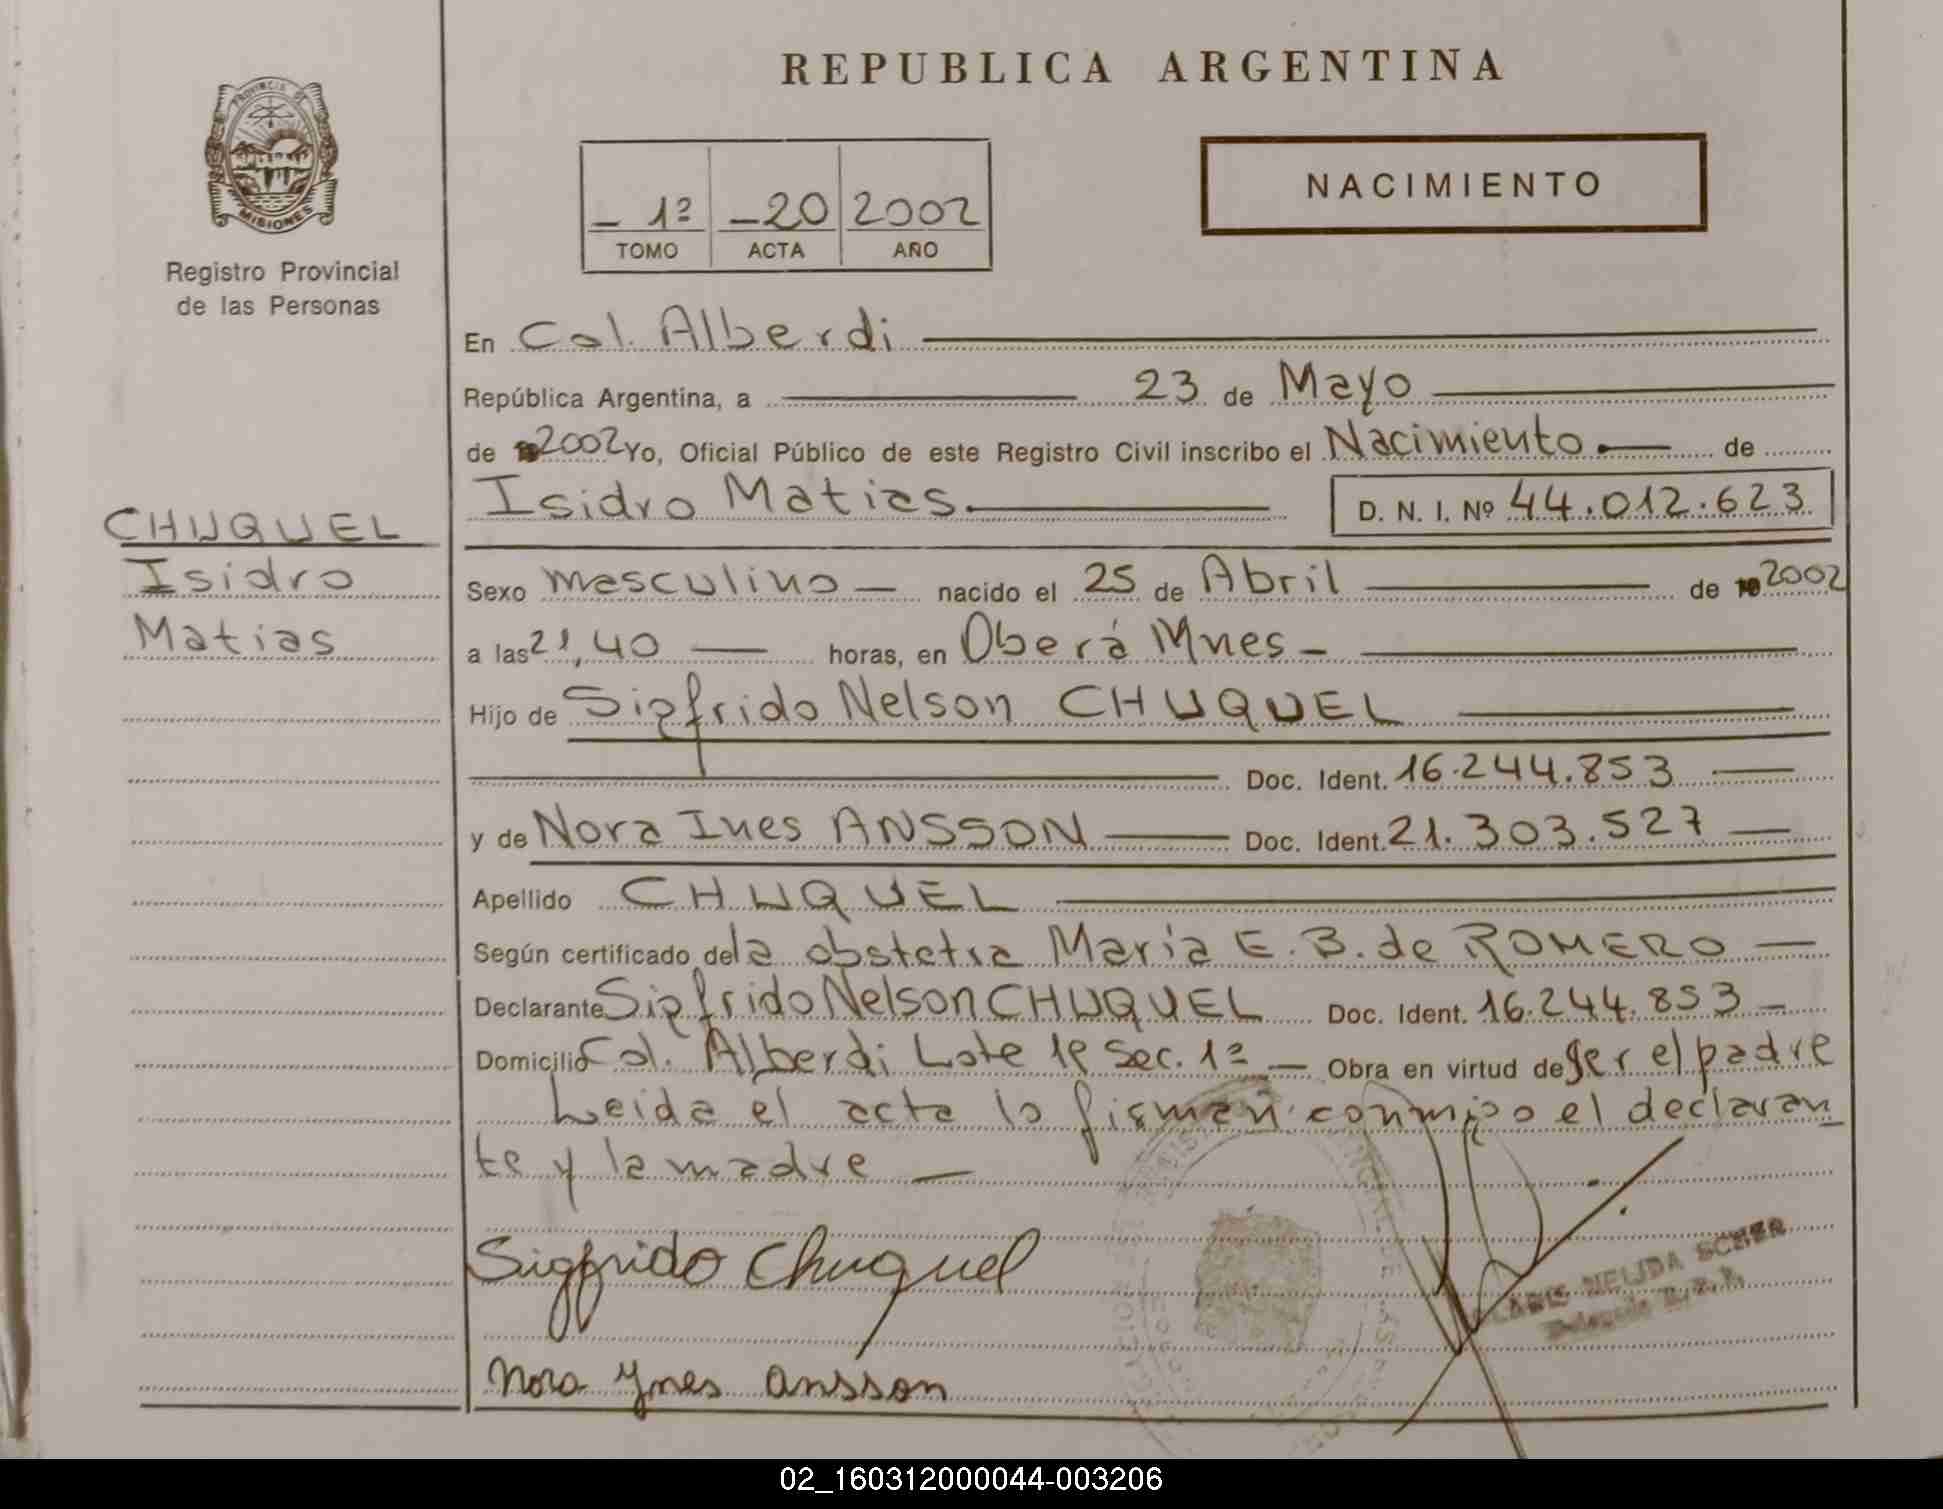 REPUBLICA ARGENTINA
PROVINCIA DE
MISIONES
Registro Provincial
de las Personas
NACIMIENTO
- 1º -20 2002
TOMO ACTA AÑO
En Col. Alberdi
República Argentina, a 23 de Mayo
de 2002 Yo, Oficial Público de este Registro Civil inscribo el Nacimiento de
Isidro Matias. D. N. I. Nº 44.012.623
CHUQUEL
Isidro
Matias
Sexo masculino nacido el 25 de Abril de 2002
a las 21,40 horas, en Oberá Mnes
Hijo de Sigfrido Nelson CHUQUEL
Doc. Ident. 16.244.853
y de Nora Ines ANSSON Doc. Ident. 21.303.527
Apellido CHUQUEL
Según certificado de la obstetra Maria E. B. de ROMERO
Declarante Sigfrido Nelson CHUQUEL Doc. Ident. 16.244.853
Domicilio Col. Alberdi Lote Sec. 1ª Obra en virtud de Ser el padre
Leida el acta lo firman conmigo el declaran
te y la madre
Sigfrido Chuquel
NELIDA
Nora Ynes Ansson
02_160312000044-003206